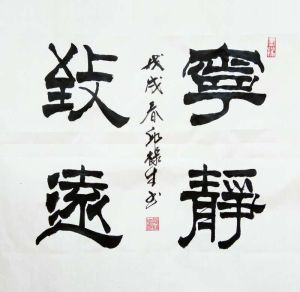 寧靜
致遠
戊戌春
生書